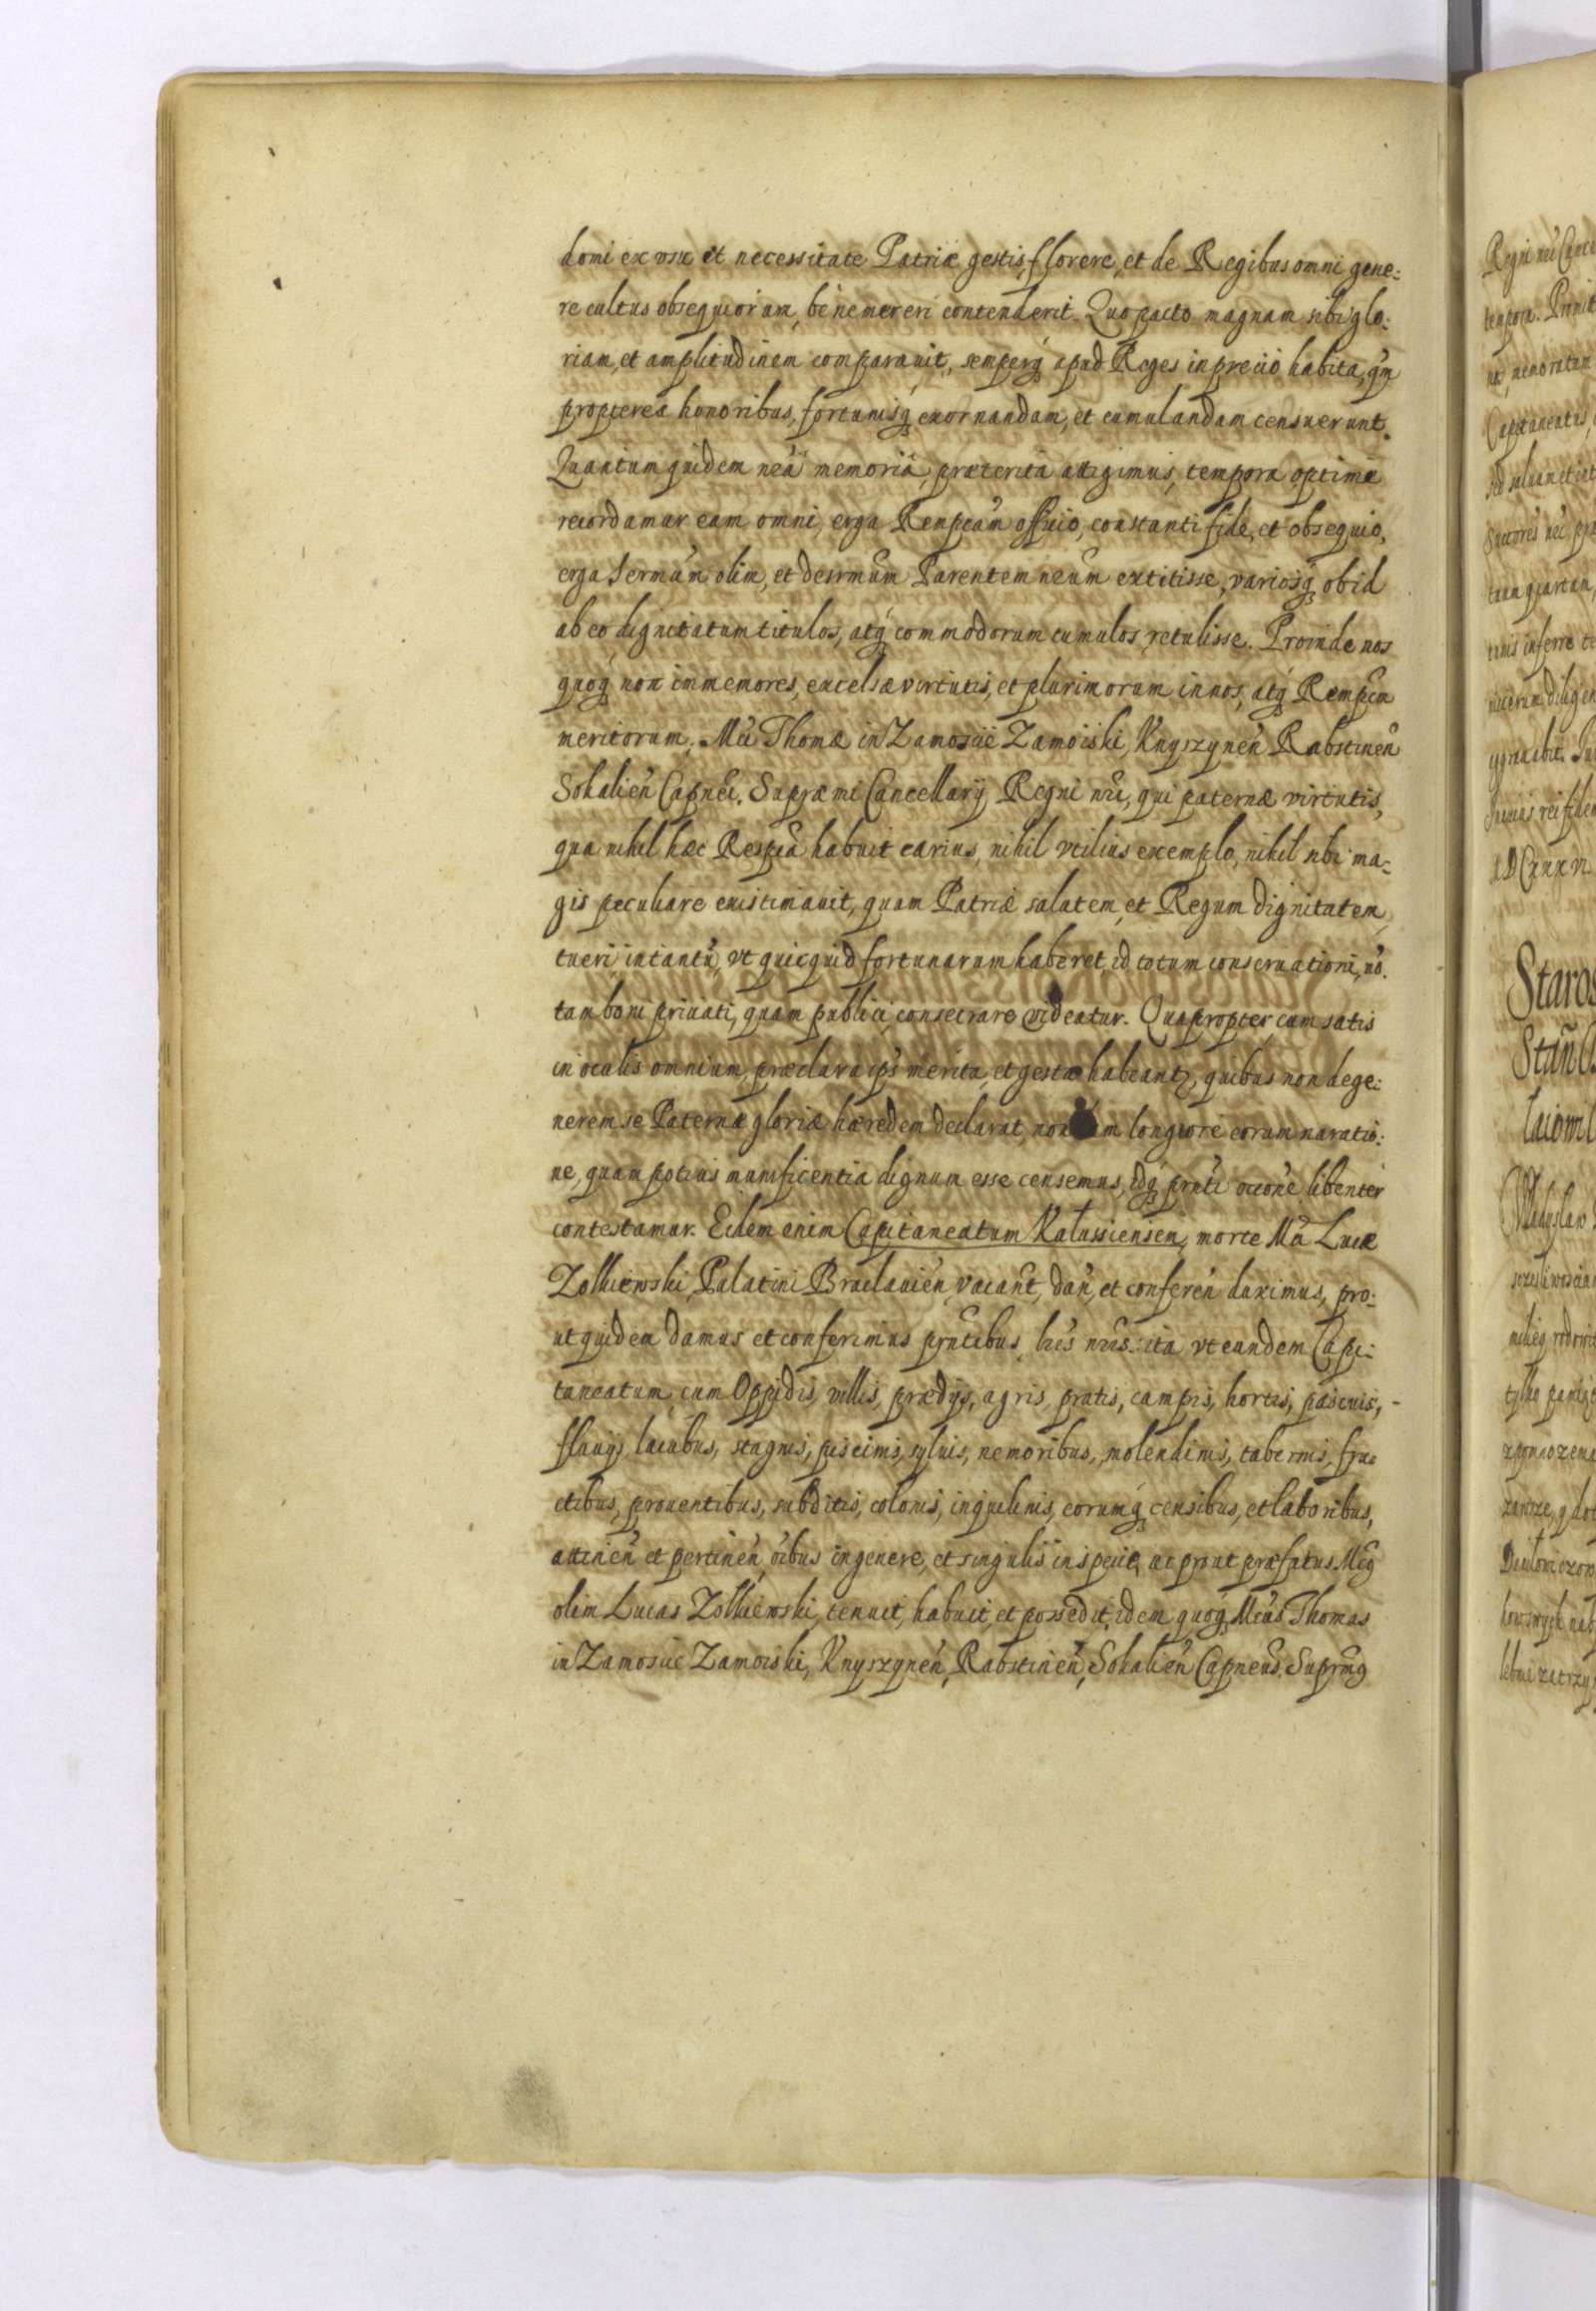 domi ex usu et necessitate Patriæ gestis, florere, et de Regibus omni gene:
re cultus obsequiorum, bene mereri contenderit. Quo pacto magnam sibi glo:
riam, et amplitudinem comparauit, semperq apud Reges in precio habita, qm
propterea honoribus, fortunisq exornandam, et cumulandam censuerunt.
Quantum quidem nr̃ã memoriã, præterita attigimus, tempora optime
recordamur eam omni, erga Rempcam officio, constanti fide, et obsequio,
erga Sermum olim, et desrmum Parentem nrum extitisse, variosq ob id
ab eo dignitatum titulos, atq commodorum cumulos retulisse. Proinde nos
quoq non immemores, excelsæ virtutis, et plurimorum in nos, atq Rempcm
meritorum, Mci Thomæ in Zamoscie Zamoiski, Knyszynen Rabstinen
Sokalien Capnei. Supræmi Cancellarij Regni nri, qui paternæ virtutis,
qua nihil hæc Respca habuit carius, nihil vtilius exemplo, nihil sibi ma:
gis peculiare existimauit, quam Patriæ salutem, et Regum dignitatem
tueri, in tantũ, vt quicquid fortunarum haberet, id totum conseruationi, nõ.
tam boni priuati, quam publici, consecrare videatur. Quapropter cum satis
in oculis omnium, præclara ips merita, et gesta habeant, quibus non dege:
nerem se Paternæ gloriæ hæredem declarat, non longiore eorum naratio:
ne, quam potius munificentia dignum esse censemus, idq prnti occone libenter
contestamur. Eidem enim Capitaneatum Kałussiensem, morte Mci Lucæ
Zolkiewski, Palatini Braclauien, vacant, dan, et conferen duximus, pro:
ut quidem damus et conferimus prntibus, lris nris: ita vt eundem Capi:
taneatum, cum Oppidis, villis, prædijs, agris, pratis, campis, hortis, pascuis, -
fluuijs, lacubus, stagnis, piscinis, syluis, nemoribus, molendinis, tabernis, fru:
ctibus, prouentibus, subditis, colonis, inquilinis, eorumq censibus, et laboribus,
attinen et pertinen, oibus in genere, et singulis in specie, ac prout præfatus Mcg
olim Lucas Zołkiewski, tenuit, habuit, et possedit, idem quoq Mcus Thomas
in Zamoscie Zamoiski, Knyszynen, Rabstinen, Sokalien Capneus. Suprmg